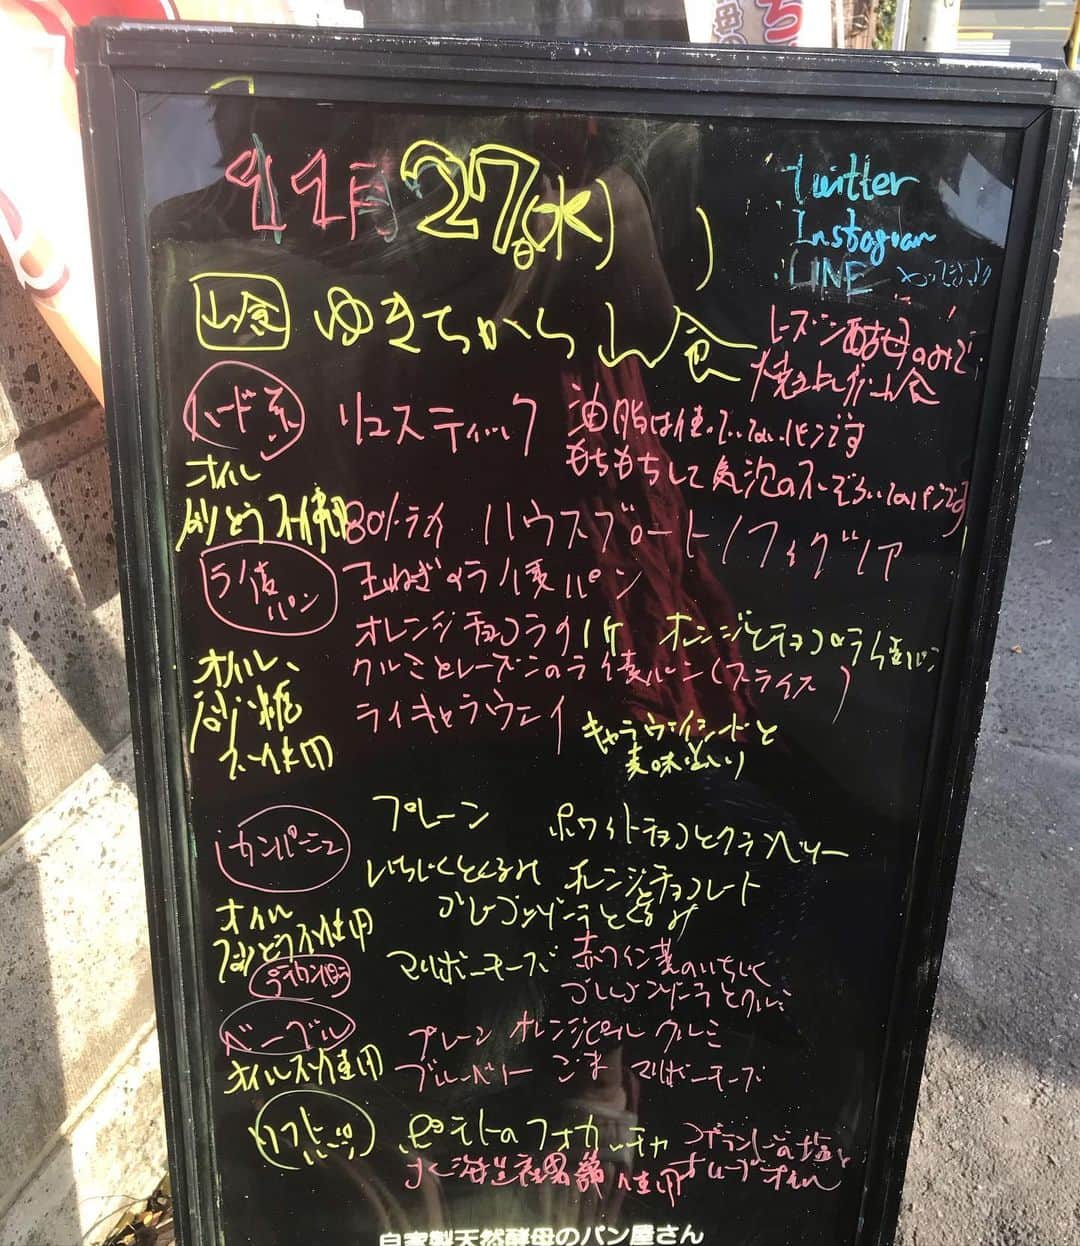 11月27日(水)
Twitter
Instagram
LINE やってます
山食 ゆきちから山食
レーズン酵母のみで
焼き上げた山食
ハード系 リュスティック 油脂は使っていないパンです
もちもちして気泡の不ぞろいのパンです
オイル
砂とう不使用 80%ライ ハウスブロート/フィグノア
ライ麦パン 玉ねぎのライ麦パン
オレンジチョコライ オレンジとチョコのライ麦パン
クルミとレーズンのライ麦パン(スライス)
オイル、
砂糖
不使用
ライキャラウェイ キャラウェイシードと
美味しい
カンパーニュ プレーン ホワイトチョコとクランベリー
いちじくとくるみ オレンジとチョコレート
ゴルゴンゾーラとくるみ
オイル
砂とう不使用
マリボーチーズ 赤ワイン煮のいちじく
ゴルゴンゾーラとクルミ
ベーグル プレーン オレンジピール クルミ
オイル不使用 ブルーベリー ごま マリボーチーズ
ソフトパン ポテトのフォカッチャ ゲランドの塩と
北海道産男爵使用 オリーブオイル
自家製天然酵母のパン屋さん